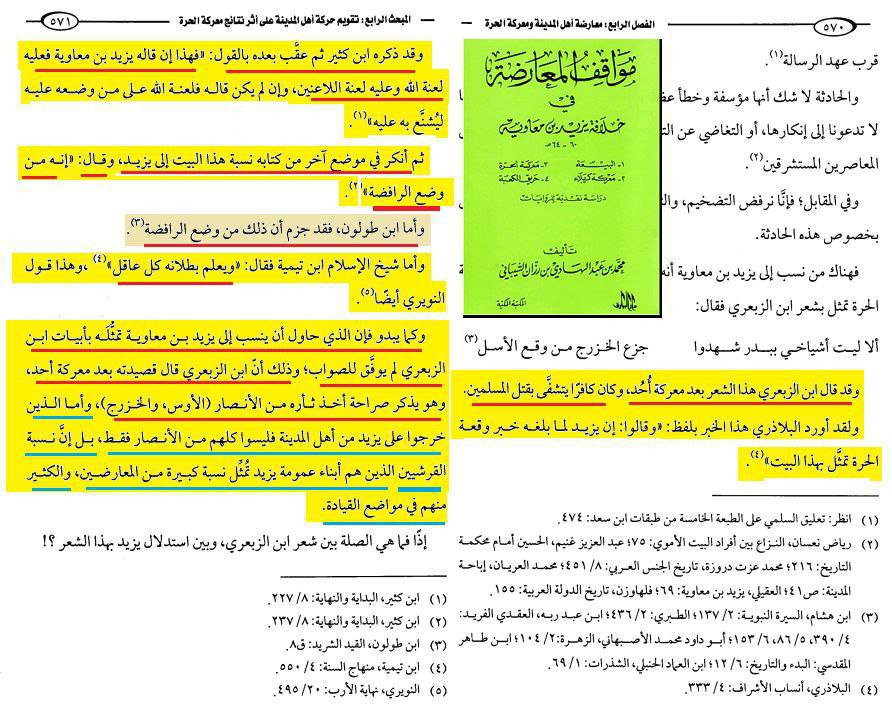 الفصل الرابع: معارضة أهل المدينة ومعركة الحرة
٥٧٠
قرب عهد الرسالة(١).
والحادثة لا شك أنها مؤسفة وخطأ
لا تدعونا إلى إنكارها، أو التغاضي عن
المعاصرين المستشرقين(٢).
وفي المقابل؛ فإنَّا نرفض التضخيم،
بخصوص هذه الحادثة.
فهناك من نسب إلى يزيد بن معاوية
الحرة تمثل بشعر ابن الزبعري فقال:
ألا ليت أشياخي ببدر شهدوا جزع الخزرج من وقع الأسل(٣)
وقد قال ابن الزبعري هذا الشعر بعد معركة أُحُد، وكان كافرًا يتشفَّى بقتل المسلمين.
ولقد أورد البلاذري هذا الخبر بلفظ: «وقالوا: إن يزيد لما بلغه خبر وقعة
الحرة تمثَّل بهذا البيت»(٤).
(١) انظر: تعليق السلمي على الطبعة الخامسة من طبقات ابن سعد: ٤٧٤.
(٢) رياض نعسان، النزاع بين أفراد البيت الأموي: ٧٥؛ عبد العزيز غنيم، الحسين أمام محكمة
التاريخ: ٢١٦؛ محمد عزت دروزة، تاريخ الجنس العربي: ٨/ ٤٥١؛ محمد العريان، إباحة
المدينة: ص٤١؛ العقيلي، يزيد بن معاوية: ٦٩؛ فلهاوزن، تاريخ الدولة العربية: ١٥٥.
(٣) ابن هشام، السيرة النبوية: ٢/ ١٣٧؛ الطبري: ٢/ ٤٣٦؛ ابن عبد ربه، العقدي الفريد:
٤/ ٣٩٠، ٥/ ٨٦، ٦/ ١٥٣؛ أبو داود محمد الأصبهاني، الزهرة: ٢/ ١٠٤؛ ابن طاهر
المقدسي: البدء والتاريخ: ٦/ ١٢؛ ابن العماد الحنبلي، الشذرات: ١/ ٦٩.
(٤) البلاذري، أنساب الأشراف: ٤/ ٣٣٣.
مواقف المعارضة
في
خلافة يزيد بن معاوية
٦٠ - ٦٤ هـ
١- البيعة ٣- معركة الحرة
٢- معركة كربلاء ٤- حريق الكعبة
دراسة نقدية للروايات
تأليف
محمد بن عبد الهادي بن رزان الشيباني
المكتبة المكية
المبحث الرابع: تقويم حركة أهل المدينة على أثر نتائج معركة الحرة
٥٧١
وقد ذكره ابن كثير ثم عقَّب بعده بالقول: «فهذا إن قاله يزيد بن معاوية فعليه
لعنة الله وعليه لعنة اللاعنين، وإن لم يكن قاله فلعنة الله على من وضعه عليه
ليُشنَّع به عليه»(١).
ثم أنكر في موضع آخر من كتابه نسبة هذا البيت إلى يزيد، وقال: «إنه من
وضع الرافضة»(٢).
وأما ابن طولون، فقد جزم أن ذلك من وضع الرافضة(٣).
وأما شيخ الإسلام ابن تيمية فقال: «ويعلم بطلانه كل عاقل»(٤)، وهذا قول
النويري أيضًا(٥).
وكما يبدو فإن الذي حاول أن ينسب إلى يزيد بن معاوية تمثُّلَه بأبيات ابن
الزبعري لم يوفَّق للصواب؛ وذلك أنّ ابن الزبعري قال قصيدته بعد معركة أحد،
وهو يذكر صراحة أخذ ثأره من الأنصار (الأوس، والخزرج)، وأما الذين
خرجوا على يزيد من أهل المدينة فليسوا كلهم من الأنصار فقط، بل إنَّ نسبة
القرشيين الذين هم أبناء عمومة يزيد تُمثِّل نسبة كبيرة من المعارضين، والكثير
منهم في مواضع القيادة.
إذًا فما هي الصلة بين شعر ابن الزبعري، وبين استدلال يزيد بهذا الشعر ؟!
(١) ابن كثير، البداية والنهاية: ٨/ ٢٢٧.
(٢) ابن كثير، البداية والنهاية: ٨/ ٢٣٧.
(٣) ابن طولون، القيد الشريد: ق٨.
(٤) ابن تيمية، منهاج السنة: ٤/ ٥٥٠.
(٥) النويري، نهاية الأرب: ٢٠/ ٤٩٥.